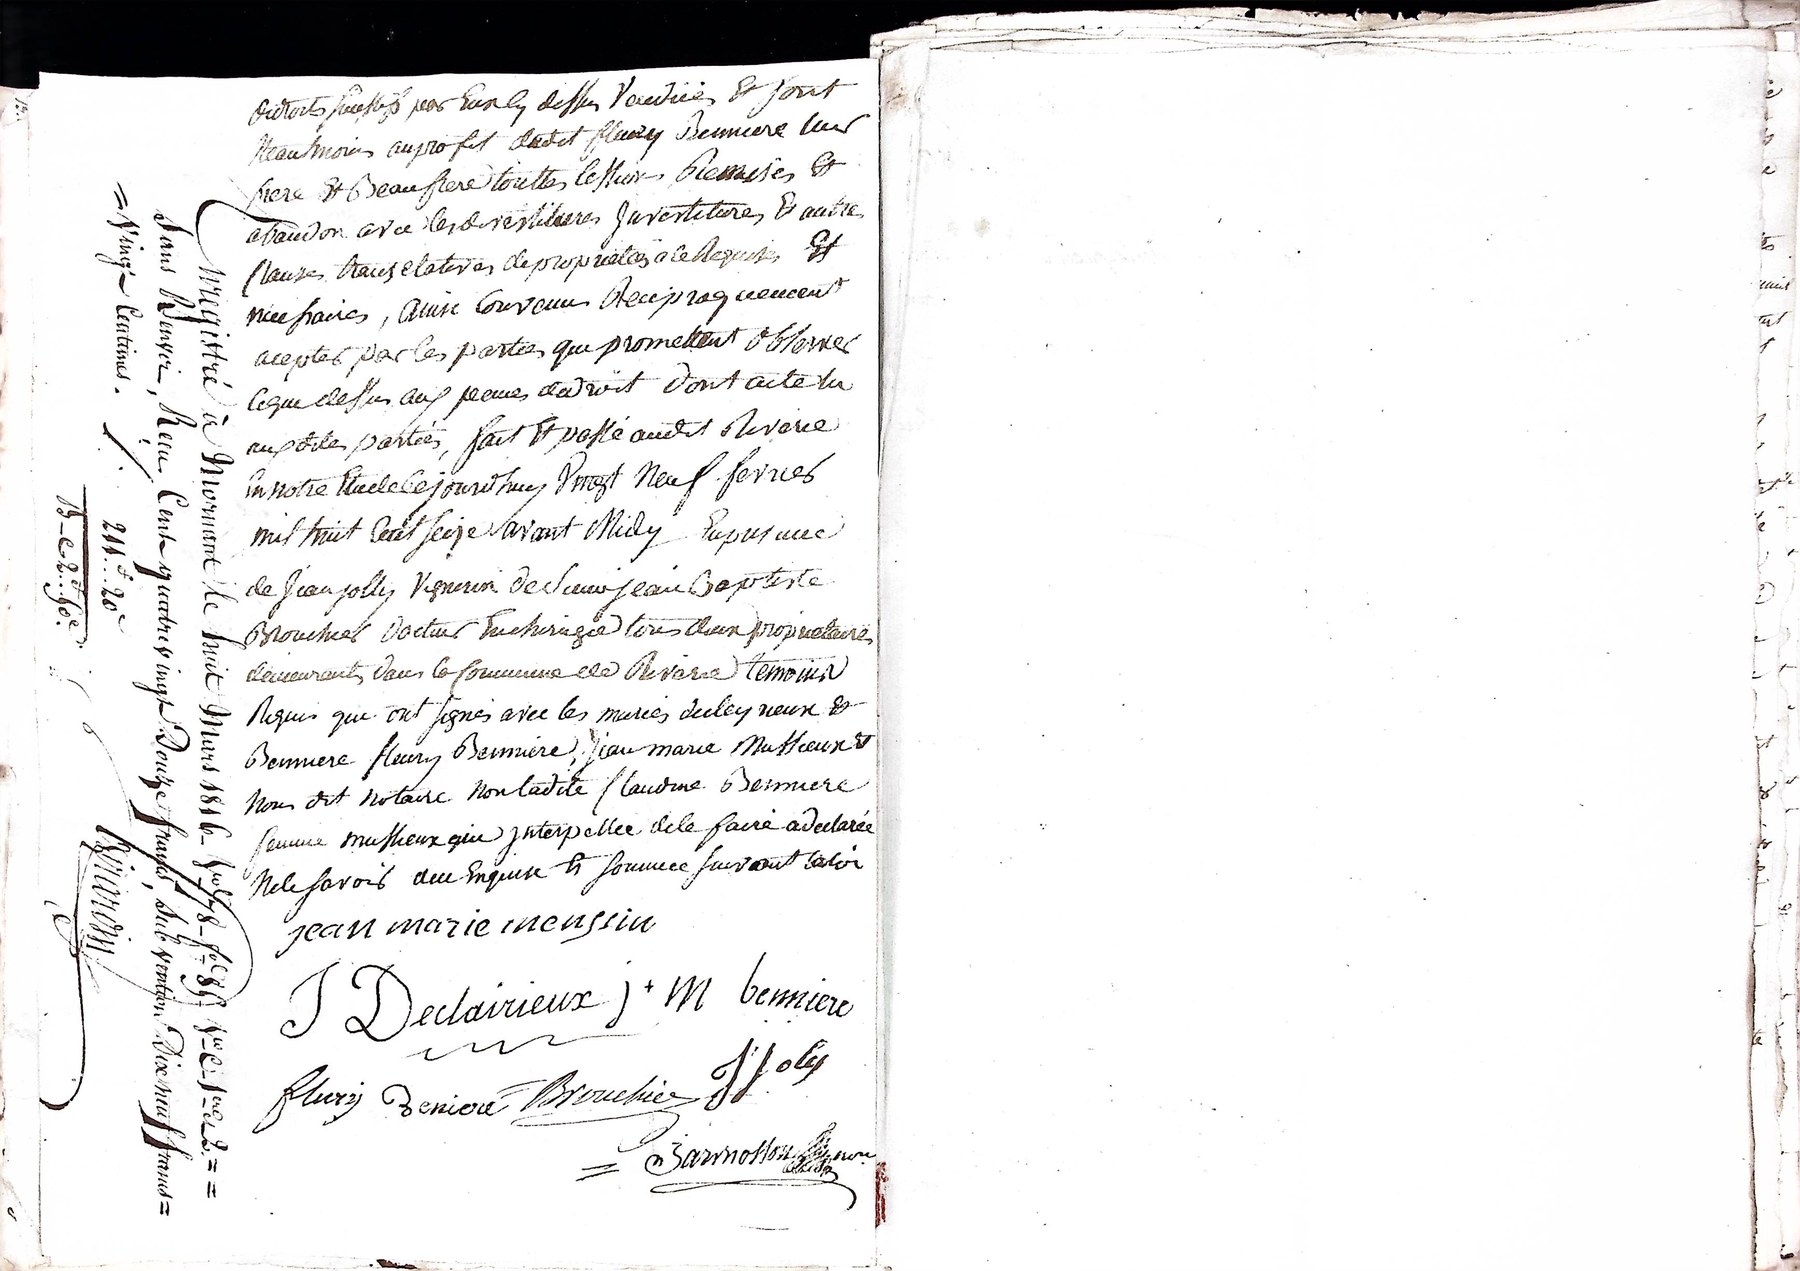 droits susdits par Eux cy dessus Vendües Et font
Neanmoins auprofit dudit fleury Benniere leur
frere Et Beaufrere touttes cessions Remises Et
abandon avec les devestitures Investitures Et autres
Clauses translatives depropriétés a ce Requises Et
necessaires, ainsi Convenu Reciproquement
acepter par les parties que promettent observer
ceque dessus aux peines dudroit Dont acte lu
auxdites parties, fait Et passé audit Riverie
En notre Etude Cejourdhuy Vingt Neuf fevrier
mil huit Cent seize avant Midy En presence
de Jean jolly Vigneron De Sieur jean Baptiste
Brouchier docteur En chirurgie tous deux propriétaires
demeurants dans la Commune de Riverie temoins
Requis que ont signés avec les mariés declerieux Et
Benniere fleury Benniere, Jean marie Mussieux Et
Nous dit notaire non ladite Claudine Benniere
femme mussieux qui Interpellée de le faire a declarée
Ne le savoir deu Enquise Et sommée suivant la loi
jean marie meussiu
J Declairieux j+ M benniere
fleury Beniere Brouchier JJ oly
=
Enregistré à Mornant le huit Mars 1816
Sans Renvoi, Reçu Cent quatre vingt Douze francs, Subvention Dix neuf francs =
= Vingt Centimes.
211f.. 20c